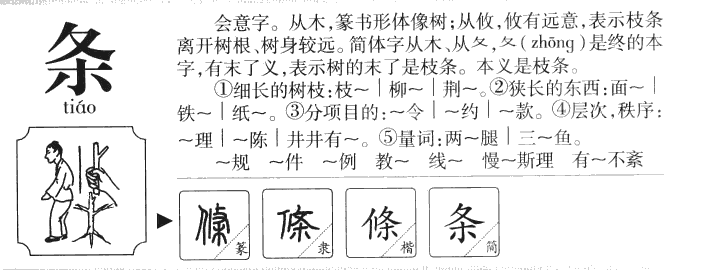 条
tiáo
会意字。从木,篆书形体像树;从攸,攸有远意,表示枝条
离开树根、树身较远。简体字从木、从夂,夂(zhōng)是终的本
字,有末了义,表示树的末了是枝条。本义是枝条。
①细长的树枝:枝～｜柳～｜荆～。②狭长的东西:面～｜
铁～｜纸～。③分项目的:～令｜～约｜～款。④层次,秩序:
～理｜～陈｜井井有～。⑤量词:两～腿｜三～鱼。
～规 ～件 ～例 教～ 线～ 慢～斯理 有～不紊
條 篆 條 隶 條 楷 条 简